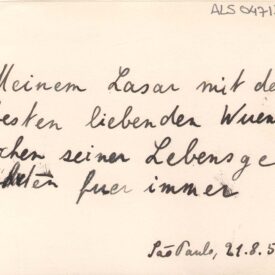 ALS 0471
Meinem Lasar mit de
esten liebenden Wuen
chen seiner Lebensge
ten fuer immer
São Paulo, 21.8.5